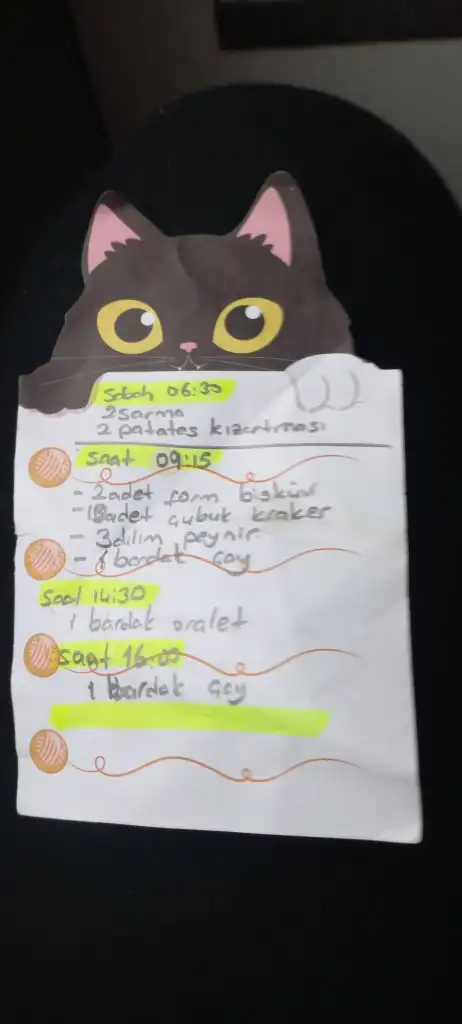 Sabah 06:30
2 sarma
2 patates kızartması
Saat 09:15
- 2 adet form bisküvi
- 18 adet çubuk kraker
- 3 dilim peynir
- 1 bardak çay
Saat 14:30
1 bardak oralet
Saat 16:00
1 bardak çay